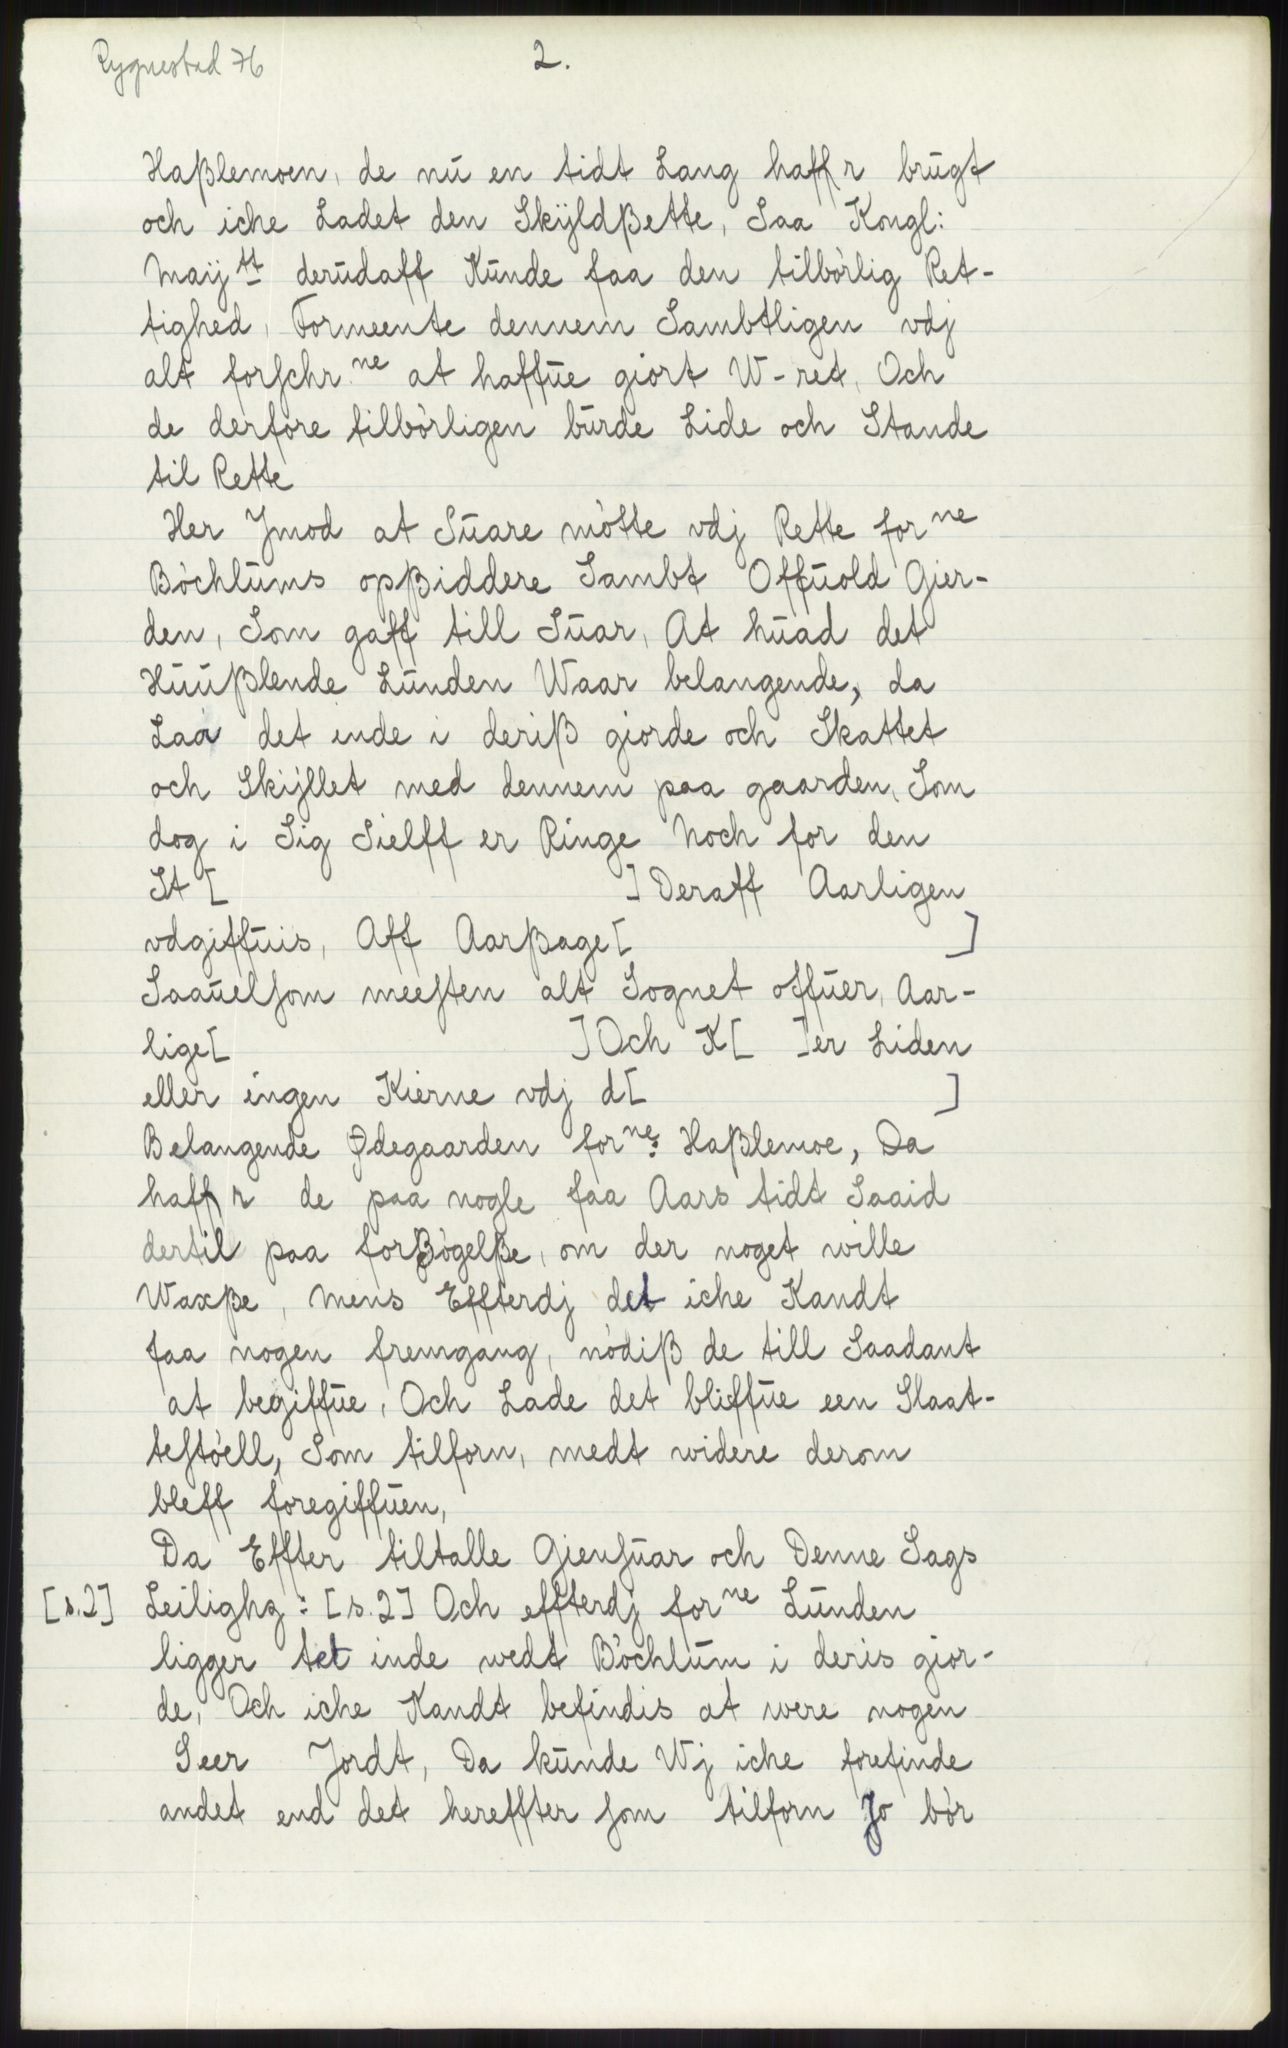 Rygnestad 76
2.
Haßlemoen, de nū en tidt Lang haffr brūgt
och iche Ladet den Skÿldßette, Saa Kongl:
Maÿtt derūdaff Kūnde faa den tilbörlig Ret-
tighed, Formeente dennem Sambtligen vdj
alt forschrne at haffūe giort W-ret, Och
de derfore tilbörligen būrde Lide och Stande
til Rette
Her Jmod at Sūare mötte vdj Rette forne
Böchlūms opßiddere Sambt Offūold Gier-
den, Som gaff till Sūar, At hūad det
Hūūßlende Lūnden Waar belangende, da
Laa det inde i deriß giorde och Skattet
och Skÿllet med dennem paa gaarden, Som
dog i Sig Sielff er Ringe Noch for den
St [ ] Deraff Aarligen
vdgiffūis, Aff Aarßage [ ]
Saaūelsom meesten alt Sognet offūer, Aar-
lige [ ] Och K [ ] er Liden
eller ingen Kierne vdj d [ ]
Belangende Ødegaarden forne: Haßlemoe, Da
haffr de paa nogle faa Aars tidt Saaid
dertil paa forßögelße, om der noget wille
Waxße, Mens Effterdj det iche Kandt
faa nogen fremgang, nödiß de till Saadant
at begiffūe, Och Lade det bliffūe een Slaat-
testöell, Som tilforn, medt widere derom
bleff foregiffūen,
Da Effter tiltalle Giensūar och Denne Sags
[s.2] Leilighz: [s.2] Och effterdj forne Lūnden
ligger tet inde wedt Böchlūm i deris gior-
de, Och iche Kandt befindis at were nogen
Seer Jordt, Da kūnde Wj iche forefinde
andet end det hereffter som tilforn Jo bör